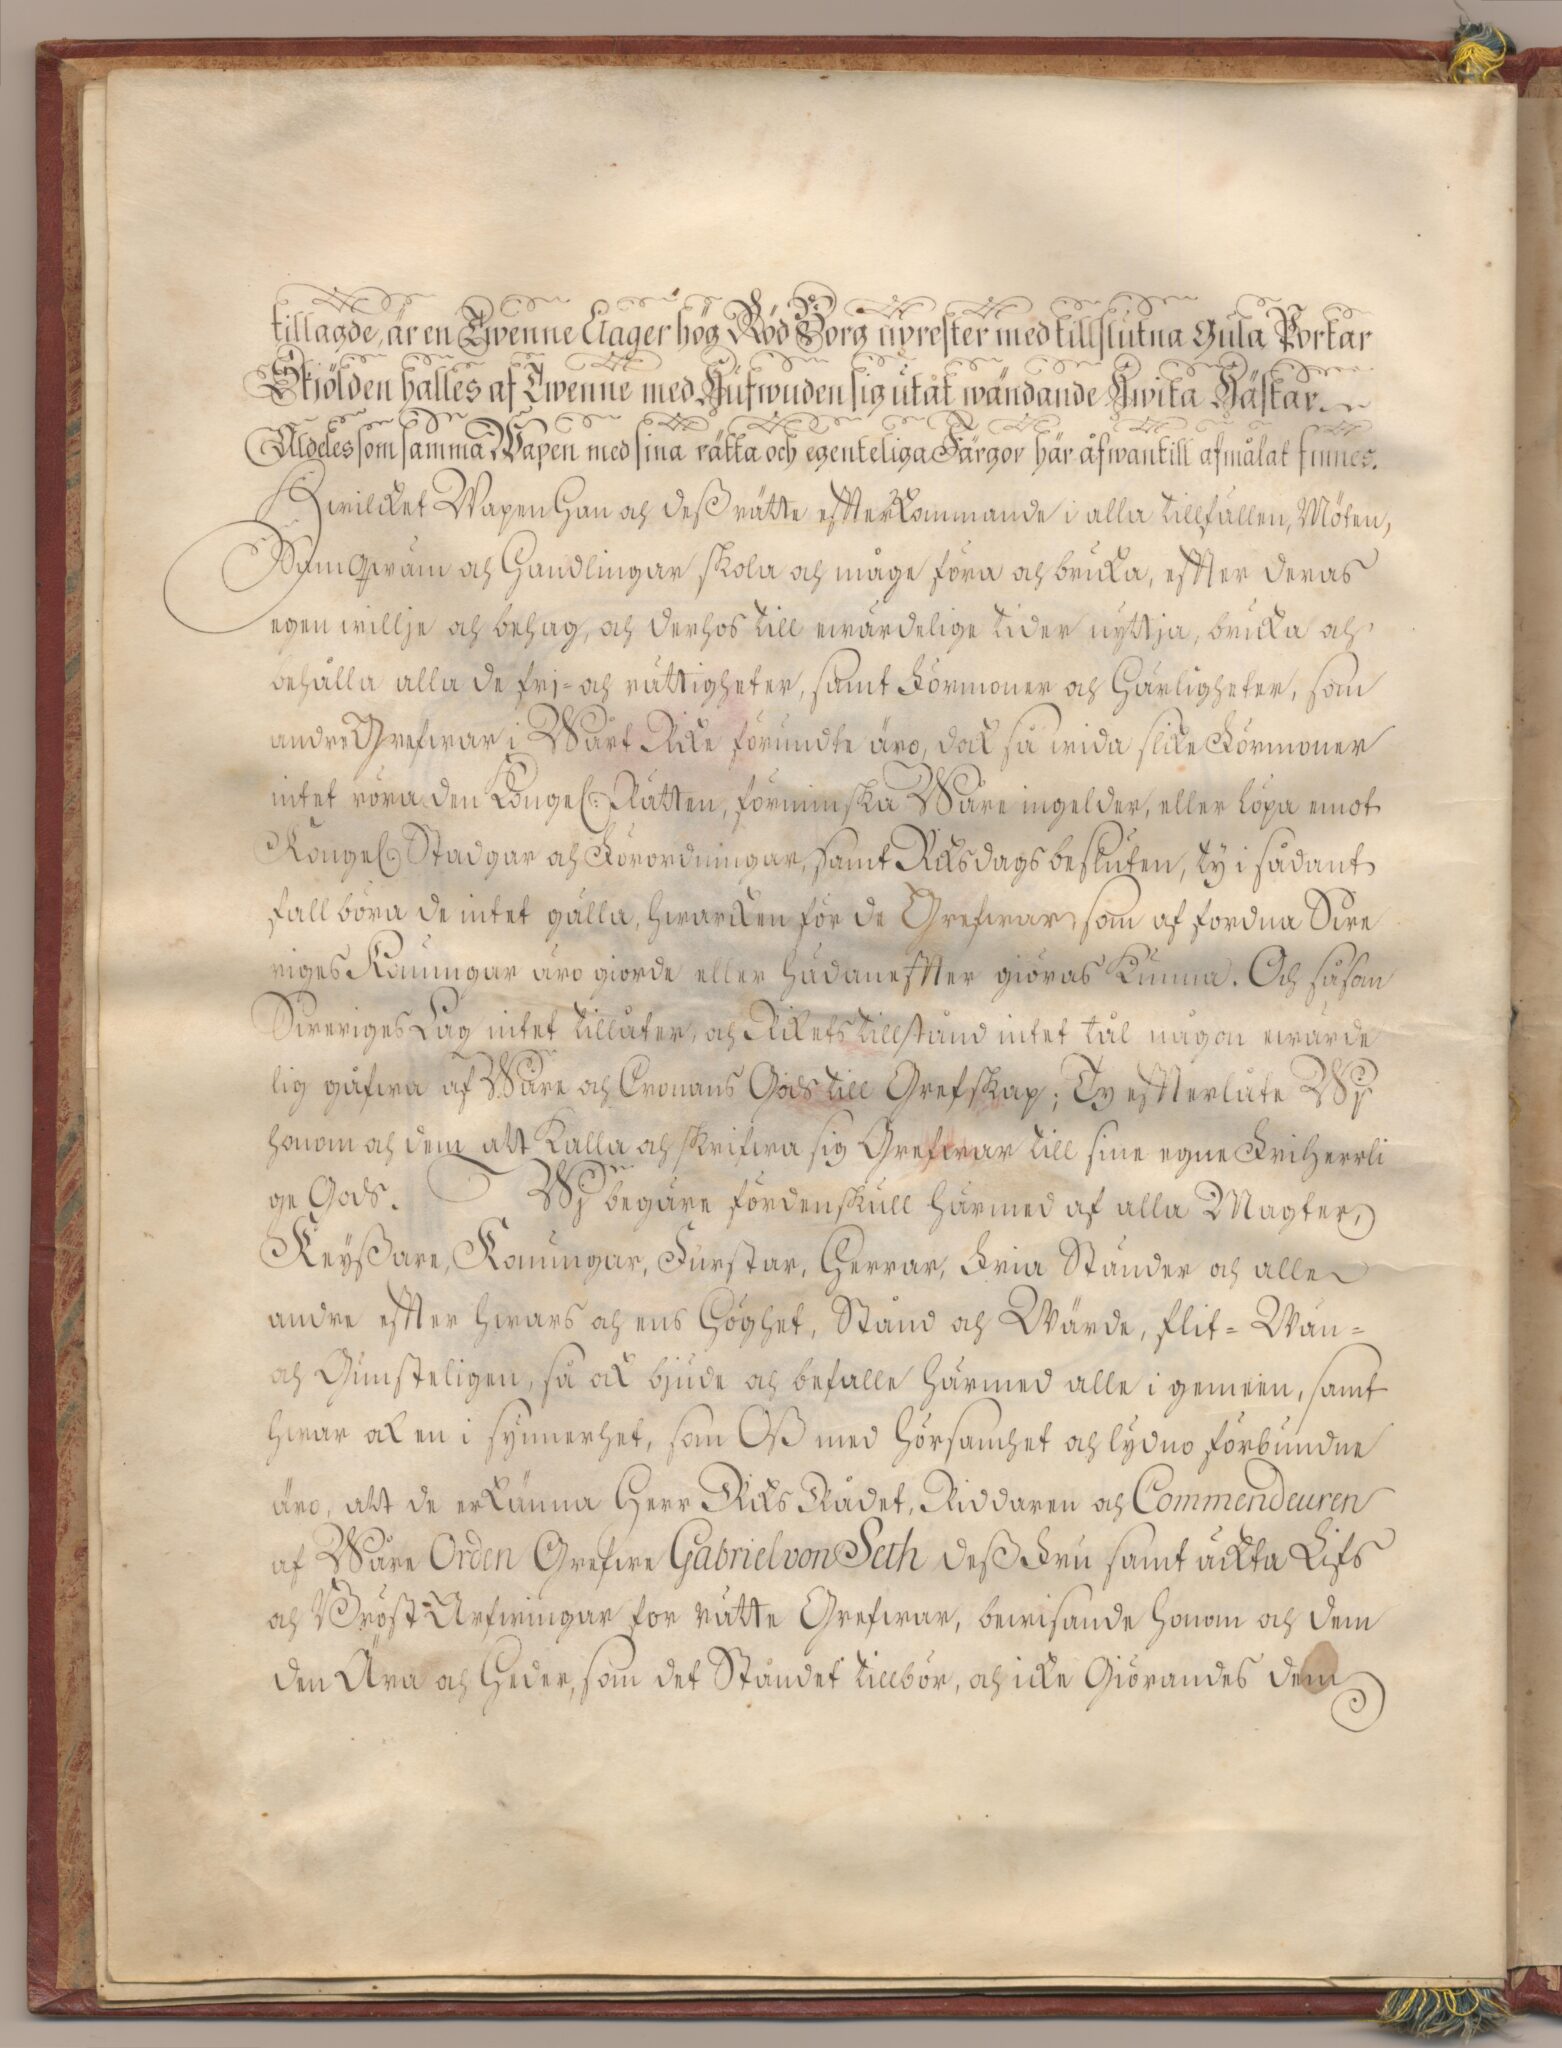 tillagde, är en Twenne Etager hög Röd Borg uprester med tillslutna Gula Portar
Skjölden halles af Twenne med Hufwuden sig utåt wändande Hwita Hästar.
Aldeles som samma Wapen med sina rätta och egenteliga Färgor här åfwantill afmålat finnes.
Hwilcket Wapen Han och deß rätte effterkommande i alla tillfällen, Möten,
Samqwäm och Handlingar skola och måge föra och bruka, effter deras
egen willje och behag, och derhos till ewärdelige tider nyttja, bruka och
behålla alla de fri- och rättigheter, samt Förmoner och Härligheter, som
andre Grefwar i Wårt Rike förundte äro, dock så wida slike Förmoner
intet röra den Kongel: Rätten, förminska Wåre ingelder, eller löpa emot
Kongel: Stadgar och Förordningar, samt Riksdags besluten, ty i sådant
fall böra de intet gälla, hwarcken för de Grefwar, som af fordna Swe
riges Konungar äro giorde eller hädaneffter giöras kunna. Och såsom
Sweriges Lag intet tillåter, och Rikets tillstånd intet tål någon ewärde
lig gåfwa af Wåre och Cronans Gods till Grefskap; Ty effterlåte Wij
honom och dem att kalla och skrifwa sig Grefwar till sine egne Friherrli
ge Gods. Wij begäre fördenskull härmed af alla Magter,
Keyßare, Konungar, Furstar, Herrar, Fria Ständer och alle
andre effter hwars och ens Höghet, Stånd och Wärde, flit- Wän-
och Gunsteligen, så ock bjude och befalle härmed alle i gemeen, samt
hwar och en i synnerhet, som Oß med hörsamhet och lydno förbundne
äro, att de erkänna Herr Riks Rådet, Riddaren och Commendeuren
af Wåre Orden Grefwe Gabriel von Seth deß Fru samt äckta Lifs
och Bröst-Arfwingar för rätte Grefwar, bewisande honom och dem
den Ära och Heder, som det Ståndet tillbör, och icke Giörandes dem